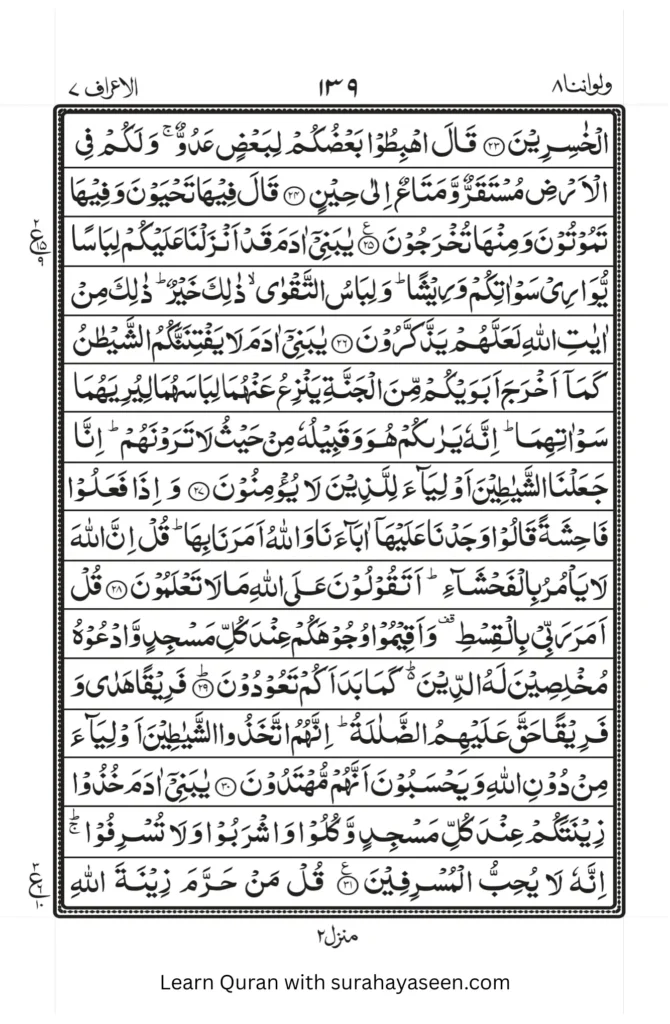 ولواننا ٨ ١٣٩ الاعراف ٧
الْخٰسِرِيْنَ ﴿۲۳﴾ قَالَ اهْبِطُوْا بَعْضُكُمْ لِبَعْضٍ عَدُوٌّ ۚ وَلَكُمْ فِى
الْاَرْضِ مُسْتَقَرٌّ وَّمَتَاعٌ اِلٰى حِيْنٍ ﴿۲۴﴾ قَالَ فِيْهَا تَحْيَوْنَ وَفِيْهَا
تَمُوْتُوْنَ وَمِنْهَا تُخْرَجُوْنَ ﴿۲۵﴾ ع يٰبَنِىْۤ اٰدَمَ قَدْ اَنْزَلْنَا عَلَيْكُمْ لِبَاسًا
يُّوَارِىْ سَوْاٰتِكُمْ وَرِيْشًا ؕ وَلِبَاسُ التَّقْوٰى ۙ ذٰلِكَ خَيْرٌ ؕ ذٰلِكَ مِنْ
اٰيٰتِ اللّٰهِ لَعَلَّهُمْ يَذَّكَّرُوْنَ ﴿۲۶﴾ يٰبَنِىْۤ اٰدَمَ لَا يَفْتِنَنَّكُمُ الشَّيْطٰنُ
كَمَاۤ اَخْرَجَ اَبَوَيْكُمْ مِّنَ الْجَنَّةِ يَنْزِعُ عَنْهُمَا لِبَاسَهُمَا لِيُرِيَهُمَا
سَوْاٰتِهِمَا ؕ اِنَّهٗ يَرٰىكُمْ هُوَ وَقَبِيْلُهٗ مِنْ حَيْثُ لَا تَرَوْنَهُمْ ؕ اِنَّا
جَعَلْنَا الشَّيٰطِيْنَ اَوْلِيَآءَ لِلَّذِيْنَ لَا يُؤْمِنُوْنَ ﴿۲۷﴾ وَاِذَا فَعَلُوْا
فَاحِشَةً قَالُوْا وَجَدْنَا عَلَيْهَاۤ اٰبَآءَنَا وَاللّٰهُ اَمَرَنَا بِهَا ؕ قُلْ اِنَّ اللّٰهَ
لَا يَاْمُرُ بِالْفَحْشَآءِ ؕ اَتَقُوْلُوْنَ عَلَى اللّٰهِ مَا لَا تَعْلَمُوْنَ ﴿۲۸﴾ قُلْ
اَمَرَ رَبِّىْ بِالْقِسْطِ قف وَاَقِيْمُوْا وُجُوْهَكُمْ عِنْدَ كُلِّ مَسْجِدٍ وَّادْعُوْهُ
مُخْلِصِيْنَ لَهُ الدِّيْنَ ؕ كَمَا بَدَاَكُمْ تَعُوْدُوْنَ ﴿۲۹﴾ ؕ فَرِيْقًا هَدٰى وَ
فَرِيْقًا حَقَّ عَلَيْهِمُ الضَّلٰلَةُ ؕ اِنَّهُمُ اتَّخَذُوا الشَّيٰطِيْنَ اَوْلِيَآءَ
مِنْ دُوْنِ اللّٰهِ وَيَحْسَبُوْنَ اَنَّهُمْ مُّهْتَدُوْنَ ﴿۳۰﴾ يٰبَنِىْۤ اٰدَمَ خُذُوْا
زِيْنَتَكُمْ عِنْدَ كُلِّ مَسْجِدٍ وَّكُلُوْا وَاشْرَبُوْا وَلَا تُسْرِفُوْا ۚ
اِنَّهٗ لَا يُحِبُّ الْمُسْرِفِيْنَ ﴿۳۱﴾ ع قُلْ مَنْ حَرَّمَ زِيْنَةَ اللّٰهِ
منزل ٢
Learn Quran with surahayaseen.com